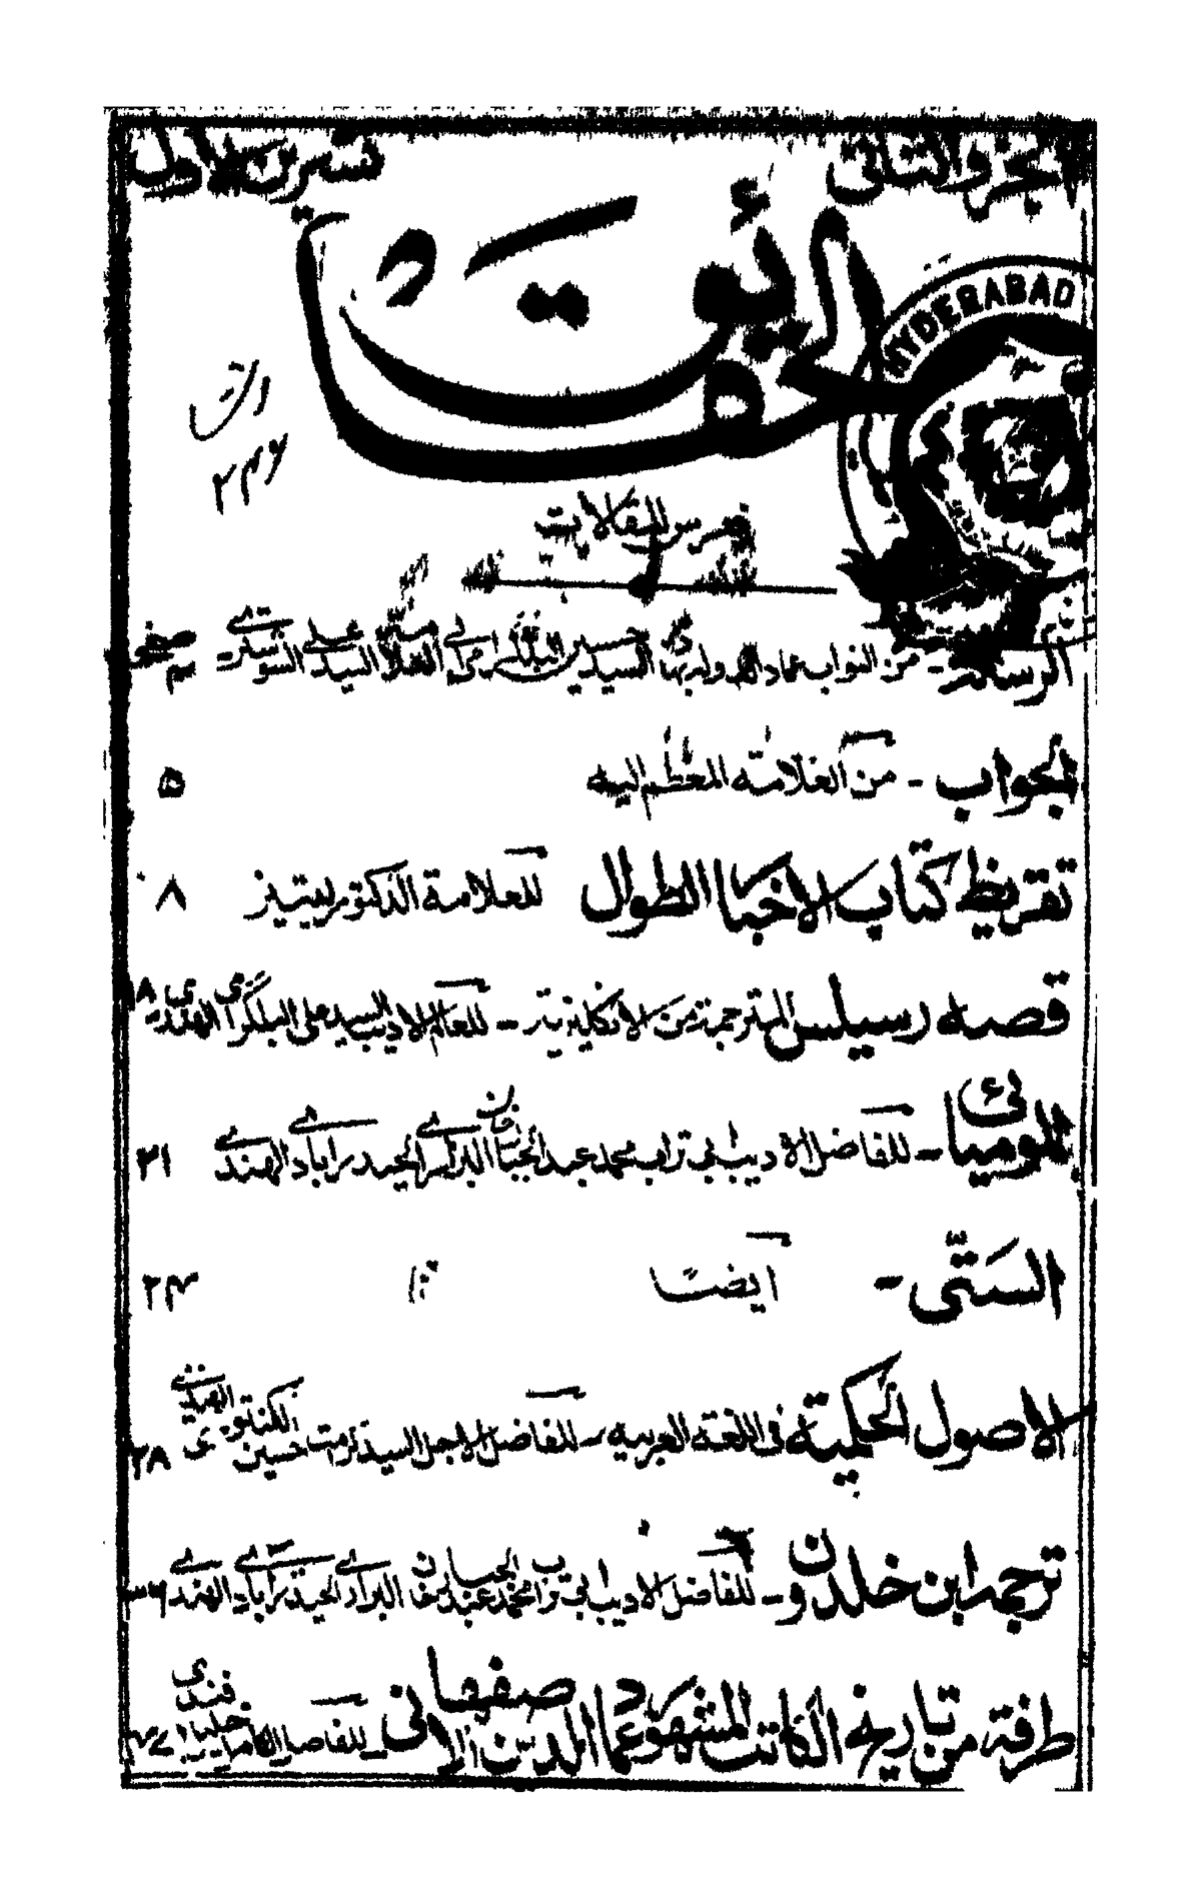 الجزء والثاني
تشرين الاول
الحقائق
HYDERABAD
٢٤٦
فهرس المقالات
صفحه
الرسالة - من النواب عماد الدوله بهادر السيد حسين البلگرامي الى العلامة السيد علي الشوستري - ٣
الجواب - من العلامة المعظم اليه ٥
تقريظ كتاب الاخبار الطوال للعلامة الدكتور ليتنيز ٨
قصه رسيلس المترجمة من الانكليزية - للعالم الاديب السيد علي البلگرامي الهندي ١٨
الموميائي - للفاضل الاديب ابي تراب محمد عبد الجبار خان البراري الحيدرابادي الهندي ٢١
الستّي - ايضا ٢٤
الاصول الحكمية في اللغة العربيه - للفاضل الاجل السيد كرامت حسين الكنتوري الهندي ٢٨
ترجمه ابن خلدون - للفاضل الاديب ابي تراب محمد عبد الجبار خان البراري الحيدرابادي الهندي ٣٦
طرفة من تاريخ الكاتب المشهور عماد الدين الاصفهاني - للفاضل